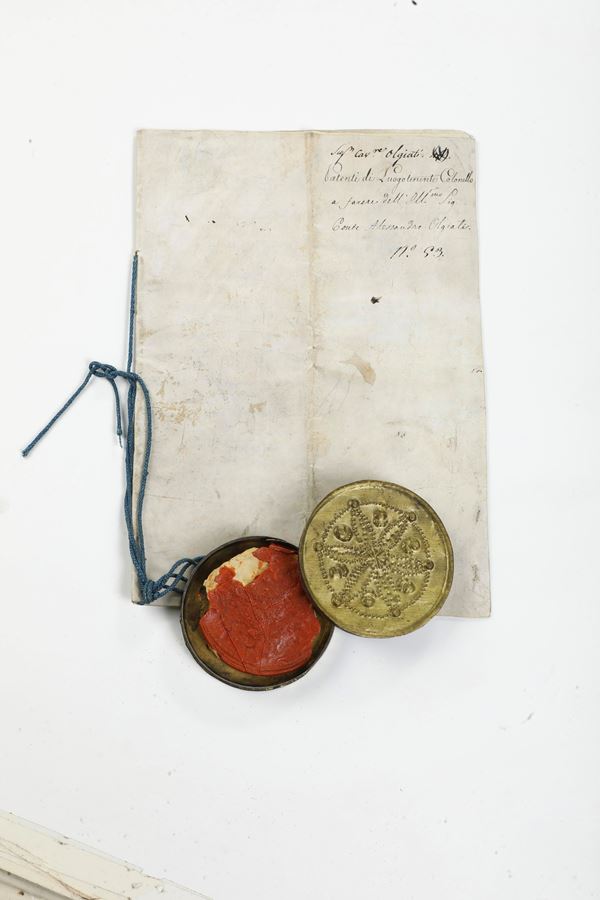 Sig.r Cav.re Olgiati.
Patenti di Luogotenente Colonello
a favore dell' Ill.mo Sig.
Conte Alessandro Olgiati.
N.o 53.